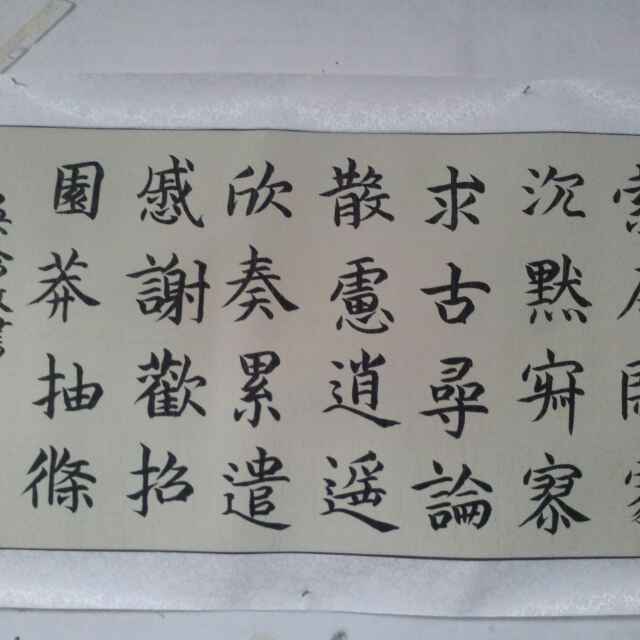 沉默寂寥
求古尋論
散慮逍遥
欣奏累遣
慼謝歡招
園莽抽條